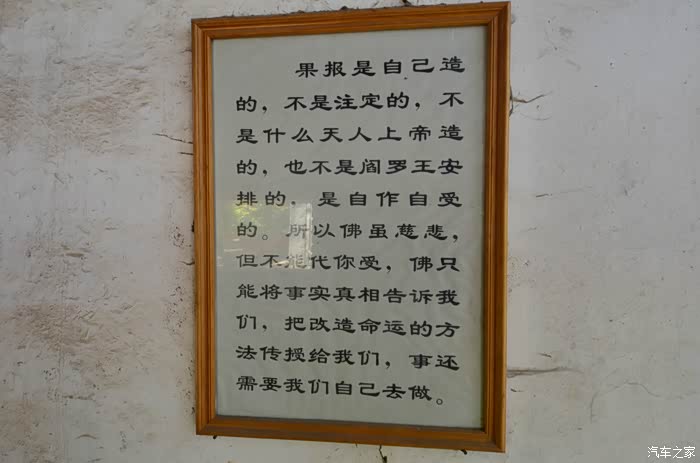 果报是自己造
的，不是注定的，不
是什么天人上帝造
的，也不是阎罗王安
排的，是自作自受
的。所以佛虽慈悲，
但不能代你受，佛只
能将事实真相告诉我
们，把改造命运的方
法传授给我们，事还
需要我们自己去做。
汽车之家